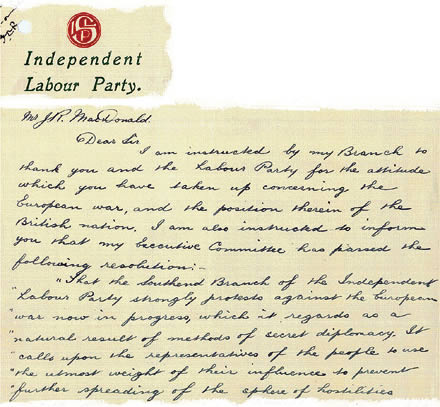 Independent
Labour Party.
Mr J.R. MacDonald.
Dear Sir
I am instructed by my Branch to
thank you and the Labour Party for the attitude
which you have taken up concerning the
European war, and the position therein of the
British nation. I am also instructed to inform
you that my Executive Committee has passed the
following resolution:-
"That the Southend Branch of the Independent
"Labour Party strongly protests against the European
"war now in progress, which it regards as a
"natural result of methods of secret diplomacy. It
"calls upon the representatives of the people to use
"the utmost weight of their influence to prevent
"further spreading of the sphere of hostilities